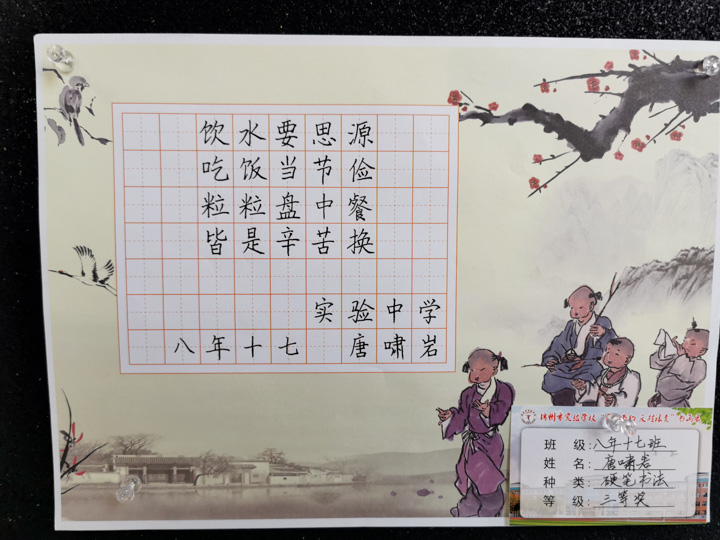 饮水要思源
吃饭当节俭
粒粒盘中餐
皆是辛苦换
实验中学
八年十七 唐啸岩
班 级:八年十七班
姓 名:唐啸岩
种 类:硬笔书法
等 级:三等奖